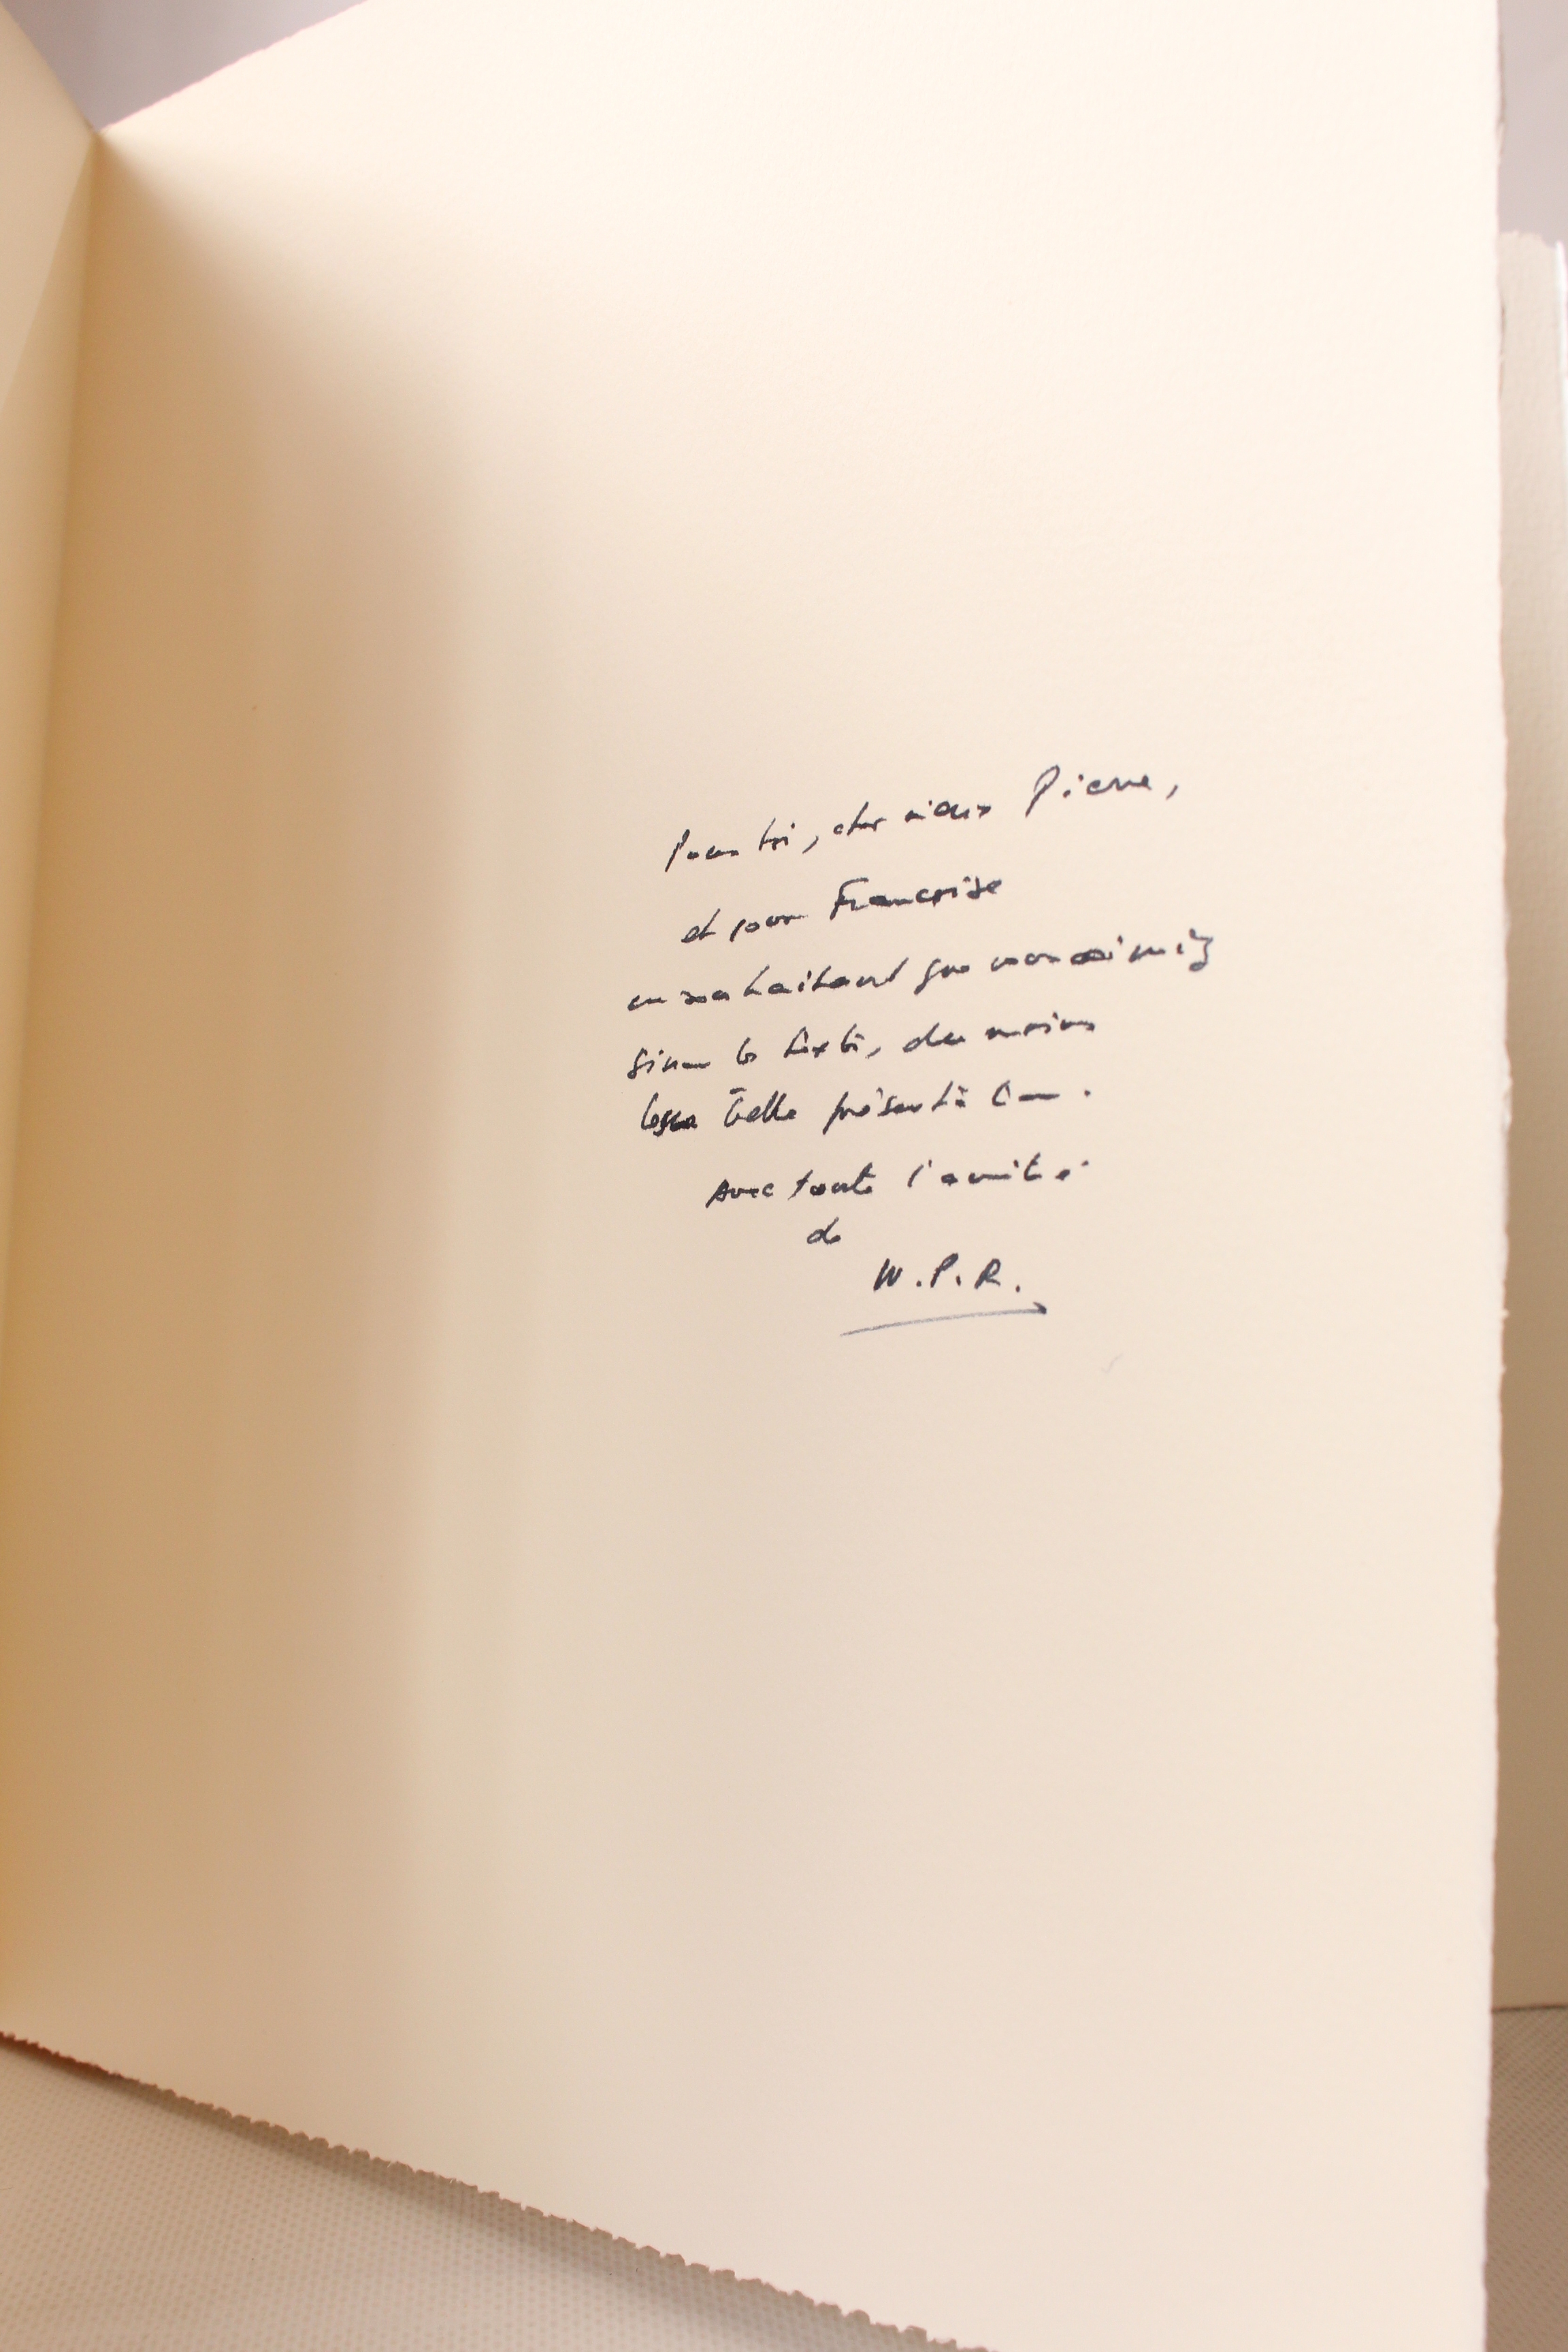 Pour toi, cher vieux Pierre,
et pour Françoise
en souhaitant que vous aimiez
sinon le texte, du moins
belle présentation.
Avec toute l'amitié
de
W.P.R.